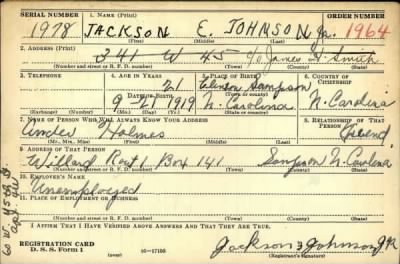 SERIAL NUMBER 1. NAME (Print)
1978 JACKSON E. JOHNSON Jr. 1964
(First) (Middle) (Last) ORDER NUMBER
2. ADDRESS (Print)
341 W 45 c/o James H Smith
(Number and street or R. F. D. number) (Town) (County) (State)
3. TELEPHONE 4. AGE IN YEARS 5. PLACE OF BIRTH 6. COUNTRY OF CITIZENSHIP
21 Clinton Sampson
DATE OF BIRTH (Town or county)
9 21 1919 N. Carolina N. Carolina
(Exchange) (Number) (Mo.) (Day) (Yr.) (State or country)
7. NAME OF PERSON WHO WILL ALWAYS KNOW YOUR ADDRESS 8. RELATIONSHIP OF THAT PERSON
Holmes friend
(Mr., Mrs., Miss) (First) (Middle) (Last)
9. ADDRESS OF THAT PERSON
Willard Rout 1 Box 141 Sampson N. Carolina
(Number and street or R. F. D. number) (Town) (County) (State)
10. EMPLOYER'S NAME
Unemployed
11. PLACE OF EMPLOYMENT OR BUSINESS
(Number and street or R. F. D. number) (Town) (County) (State)
I AFFIRM THAT I HAVE VERIFIED ABOVE ANSWERS AND THAT THEY ARE TRUE.
REGISTRATION CARD
D. S. S. Form 1 16-17105
Jackson E Johnson Jr
(Registrant's signature)